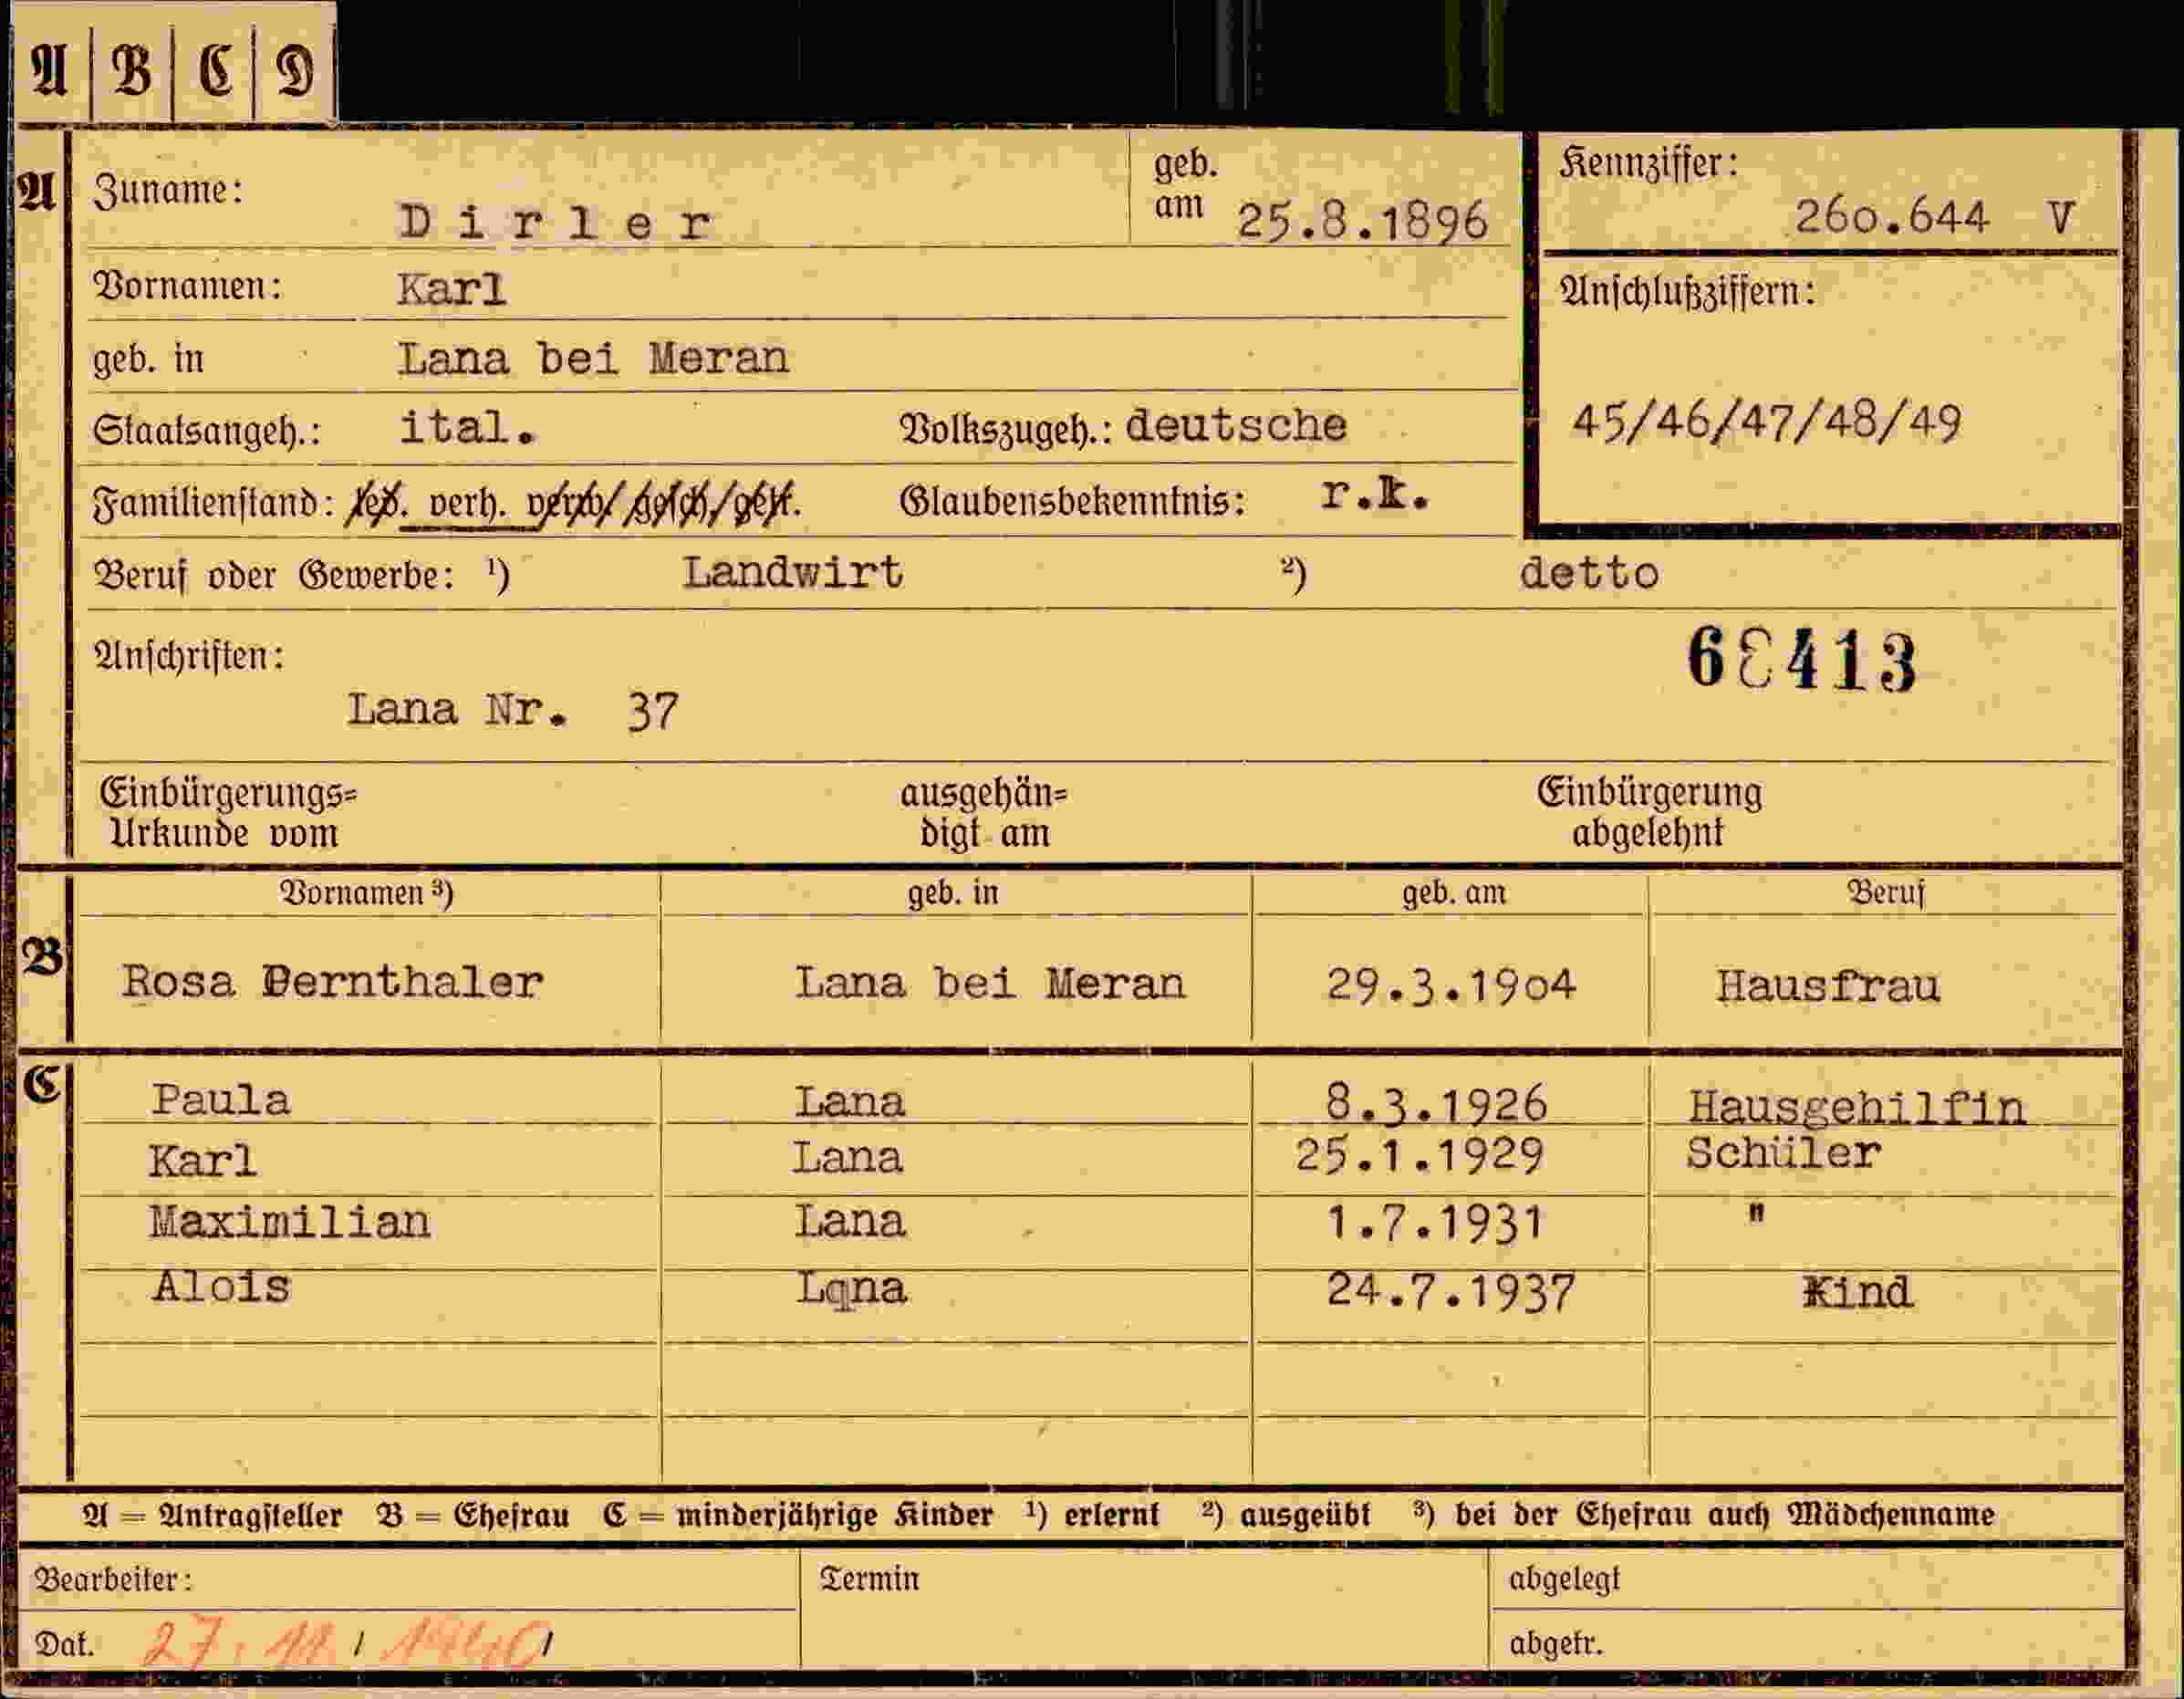 A B C D
A Zuname: Dirler geb. am 25.8.1896 Kennziffer: 260.644 V
Vornamen: Karl Anschlußziffern:
geb. in Lana bei Meran
45/46/47/48/49
Staatsangeh.: ital. Volkszugeh.: deutsche
Familienstand: led. verh. verw./gesch./get. Glaubensbekenntnis: r.k.
Beruf oder Gewerbe: ¹) Landwirt ²) detto
Anschriften:
Lana Nr. 37
Einbürgerungs= ausgehän= Einbürgerung
Urkunde vom digt am abgelehnt
Vornamen ³) geb. in geb. am Beruf
B Rosa Pernthaler Lana bei Meran 29.3.1904 Hausfrau
C Paula Lana 8.3.1926 Hausgehilfin
Karl Lana 25.1.1929 Schüler
Maximilian Lana 1.7.1931 "
Alois Lqna 24.7.1937 Kind
A = Antragsteller B = Ehefrau C = minderjährige Kinder ¹) erlernt ²) ausgeübt ³) bei der Ehefrau auch Mädchenname
Bearbeiter: Termin abgelegt
Dat. 27. 11. / 1940 / abgetr.